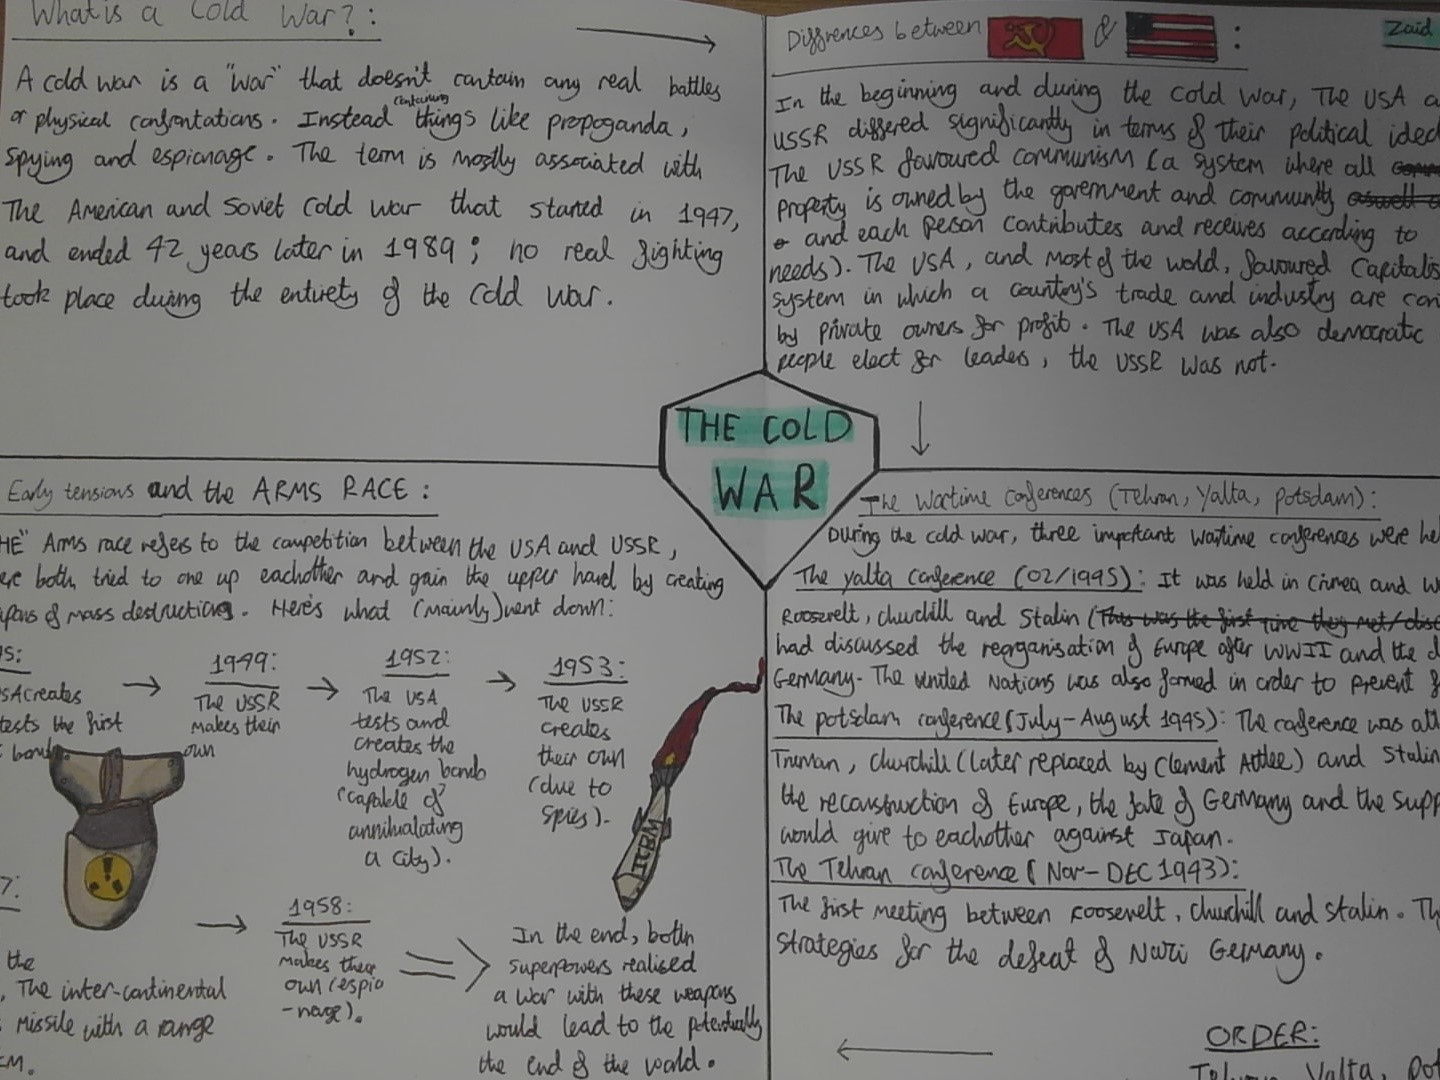 What is a Cold War?:
A cold war is a "war" that doesn't contain any real battles
or physical confrontations. Instead containing things like propoganda,
spying and espionage. The term is mostly associated with
The American and Soviet Cold War that started in 1947,
and ended 42 years later in 1989; no real fighting
took place during the entirety of the Cold War.
Diffrences between & :
Zaid
In the beginning and during the Cold War, The USA a
USSR differed significantly in terms of their political ideo
The USSR favoured communism (a system where all
property is owned by the government and community aswell a
and each person contributes and receives according to
needs). The USA, and most of the world, favoured Capitalis
system in which a country's trade and industry are con
by private owners for profit. The USA was also democratic
people elect for leaders, the USSR was not.
THE COLD
WAR
Early tensions and the ARMS RACE:
HE" Arms race refers to the competition between the USA and USSR,
ere both tried to one up eachother and gain the upper hand by creating
apons of mass destructions. Here's what (mainly) went down:
45:
SA creates
tests the first
c bomb
1949:
The USSR
makes their
own
1952:
The USA
tests and
creates the
hydrogen bomb
(capable of
annihialating
a city).
1953:
The USSR
creates
their own
(due to
spies).
ICBM
7:
the
, The inter-continental
missile with a range
KM.
1958:
The USSR
makes their
own (espio
-nage).
In the end, both
superpowers realised
a war with these weapons
would lead to the potentially
the end of the world.
The wartime conferences (Tehran, Yalta, Potsdam):
During the cold war, three important wartime conferences were hel
The Yalta Conference (02/1945): It was held in Crimea and w
Roosevelt, Churchill and Stalin (This was the first time they met/disc
had discussed the reorganisation of Europe after WWII and the d
Germany. The United Nations was also formed in order to prevent f
The potsdam conference (July-August 1945): The conference was att
Truman, Churchill (later replaced by Clement Attlee) and Stalin
the reconstruction of Europe, the fate of Germany and the supp
would give to eachother against Japan.
The Tehran conference (Nov-DEC 1943):
The first meeting between Roosevelt, Churchill and Stalin. Th
strategies for the defeat of Nazi Germany.
ORDER:
Tehran, Yalta, Pot